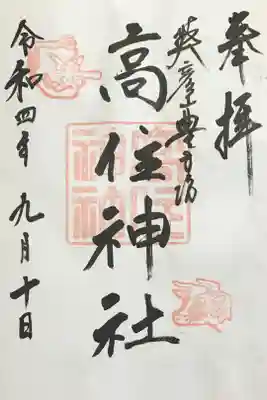 奉拝
英彦山豊前坊
高住神社
令和四年 九月十日